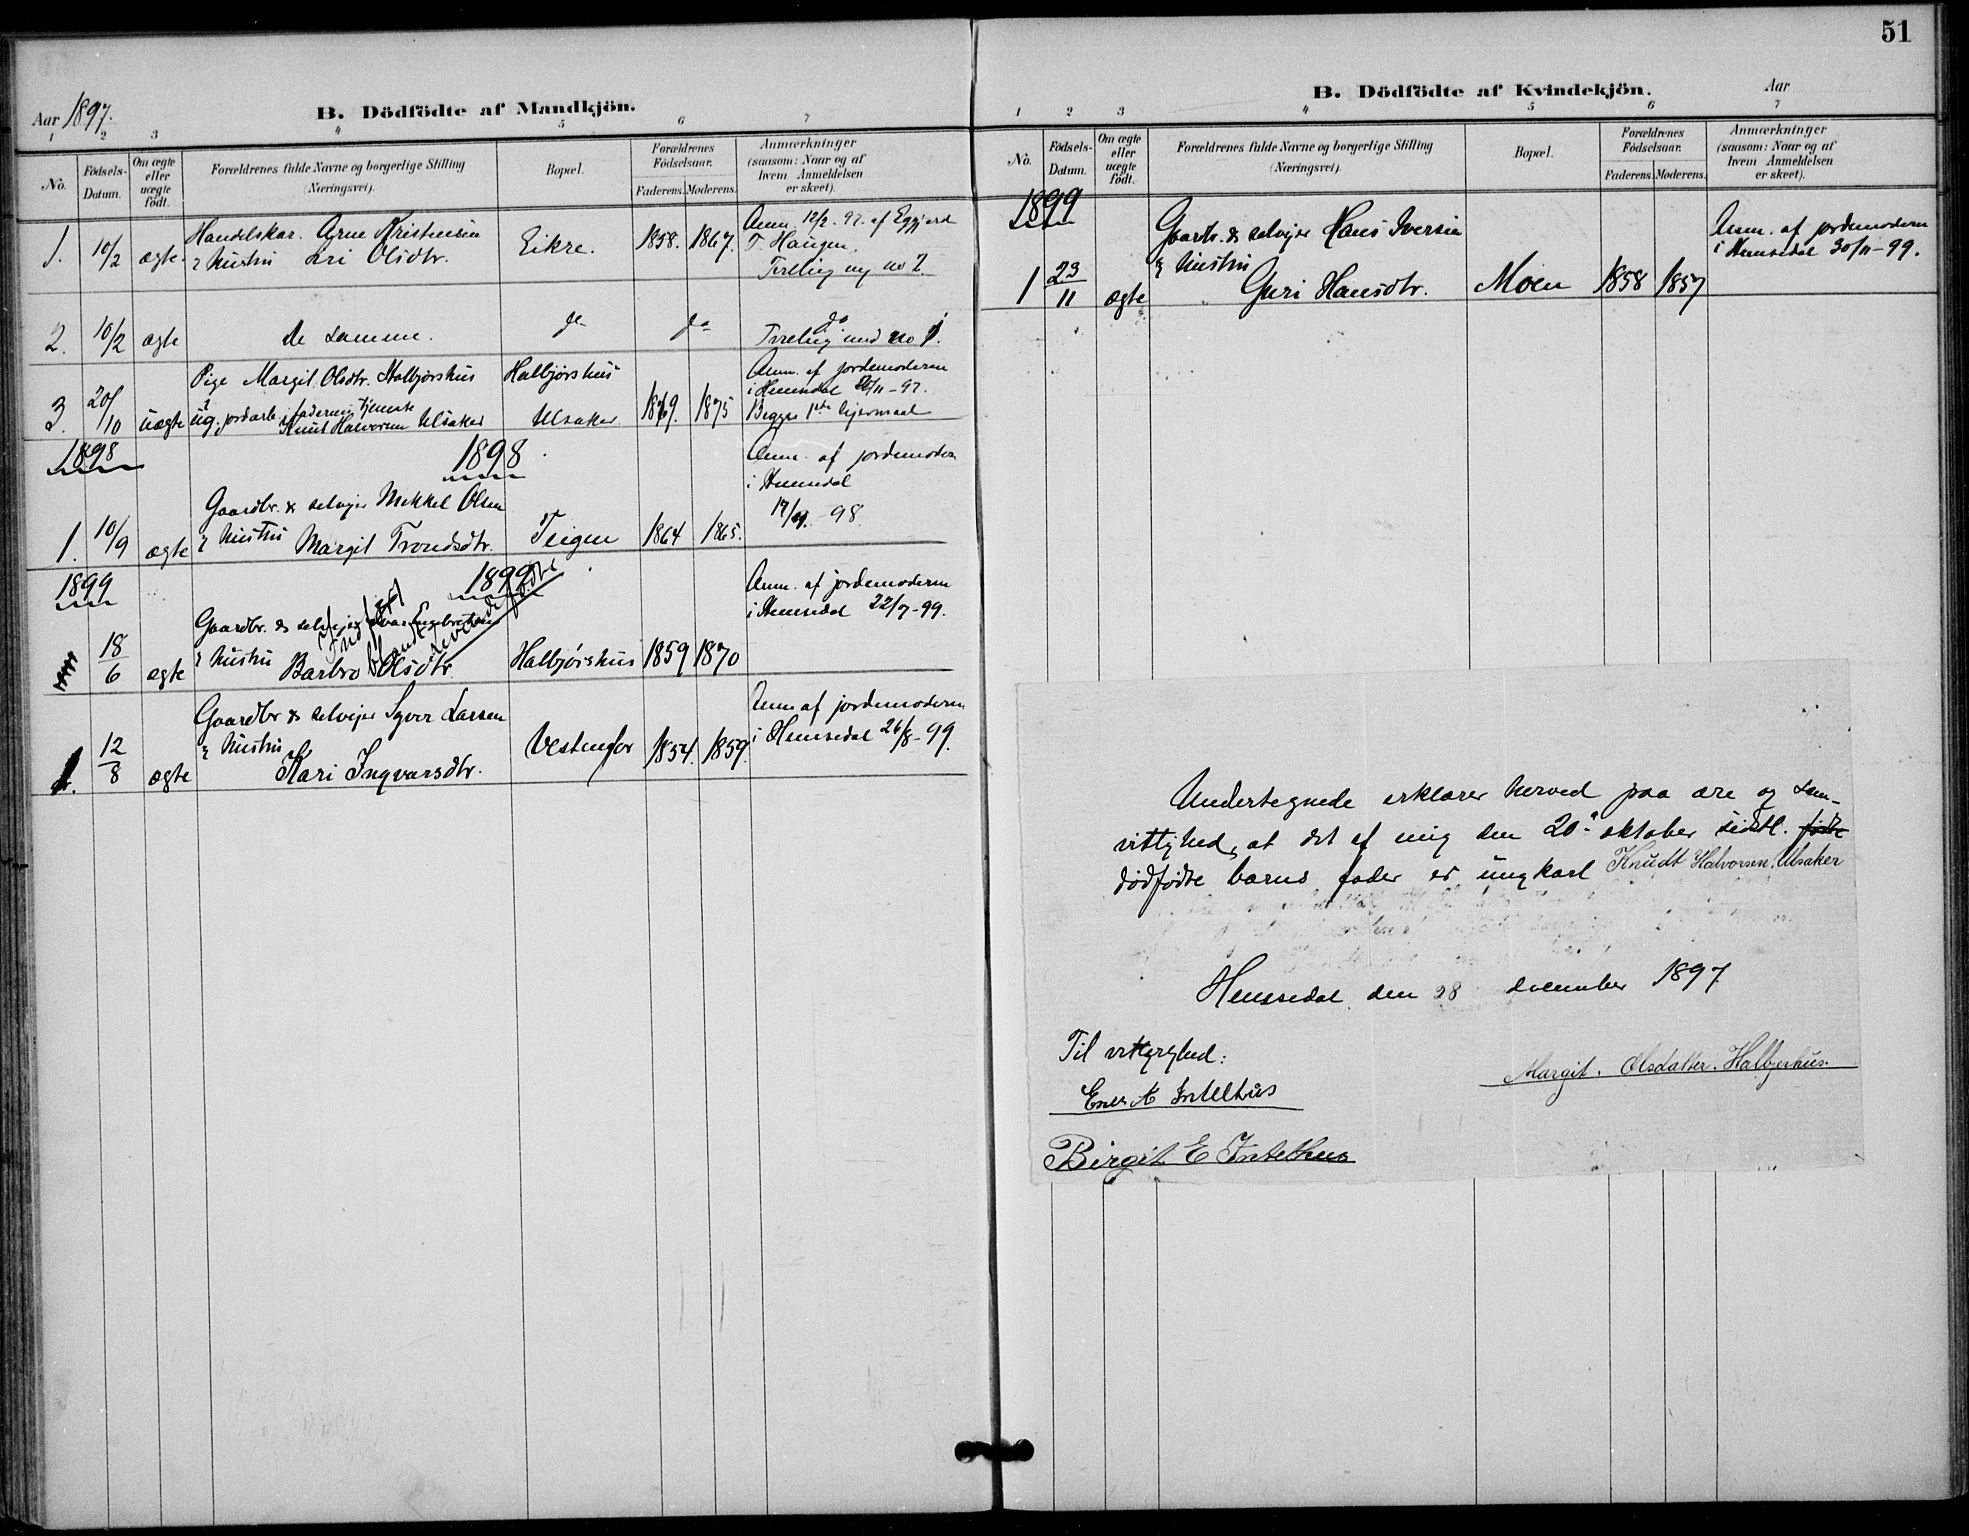 51
Aar 1897.
B. Dödfödte af Mandkjön.
1 2 3 4 5 6 7
No.
Födsels-
Datum.
Om ægte
eller
uægte
födt.
Forældrenes fulde Navne og borgerlige Stilling
(Næringsvei).
Bopæl.
Forældrenes
Födselsaar.
Faderens. Moderens.
Anmærkninger
(saasom: Naar og af
hvem Anmeldelsen
er skeet).
1. 10/2 ægte. Handelskar. Arne Kristensen
& hustru Kri Olsdtr. Eikre. 1858. 1867.
Anm. 12/2. 97. af
T. Haugen.
Tvilling m no 2.
2. 10/2 ægte de samme. do do do
Tvilling med no 1.
3. 20/10 uægte Pige Margit Olsdtr. Halbjørshus
& ug. jordarb. i faderens tjeneste
Knut Halvorsen Ulsaker
Halbjørshus
Ulsaker 1869. 1875
Anm. af jordemoderen
i Hemsedal /11-97.
Begges 1ste leiermaal
1898 1898
1. 10/9 ægte Gaardbr. & selveier Mekkel Olsen
& hustru Margit Trondsdtr. Teigen 1864 1865.
Anm. af jordemoderen
i Hemsedal
98.
1899 1899
18/6 ægte Gaardbr. & selveier
& hustru Barbro Olsdtr. Halbjørshus 1859 1870
Indført
blandt levendefødte
Anm. af jordemoderen
i Hemsedal 22/7-99.
1. 12/8 ægte Gaardbr & selveier Syver Larsen
& hustru
Kari Ingvarsdtr. Vestenfor 1854. 1859.
Anm af jordemoderen
i Hemsedal 26/8-99.
B. Dödfödte af Kvindekjön.
Aar
1 2 3 4 5 6 7
No.
Födsels-
Datum.
Om ægte
eller
uægte
födt.
Forældrenes fulde Navne og borgerlige Stilling
(Næringsvei).
Bopæl.
Forældrenes
Födselsaar.
Faderens. Moderens.
Anmærkninger
(saasom: Naar og af
hvem Anmeldelsen
er skeet).
1899
1 23/11 ægte Gaardbr. & selveier Hans Iversen
& hustru
Guri Hansdtr. Moen 1858 1857
Anm. af jordemoderen
i Hemsedal 30/11-99.
Undertegnede erklærer herved paa ære og sam-
vittighed, at det af mig den 20de oktober sidstl. fødte
dødfødte barns fader er ungkarl Knudt Halvorsen, Ulsaker
Hemsedal, den 28 december 1897.
Til vitterlighed:
Margit. Olsdatter. Halbjerhus.
Intelhus
Birgit E Intelhus